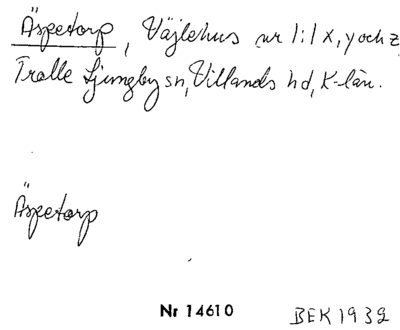 Äspetorp, Väjlehus nr 1:1 x, y och z,
Tralle Ljungby sn, Villands hd, K-län.
Äspetorp
Nr 14610
BEK 1932